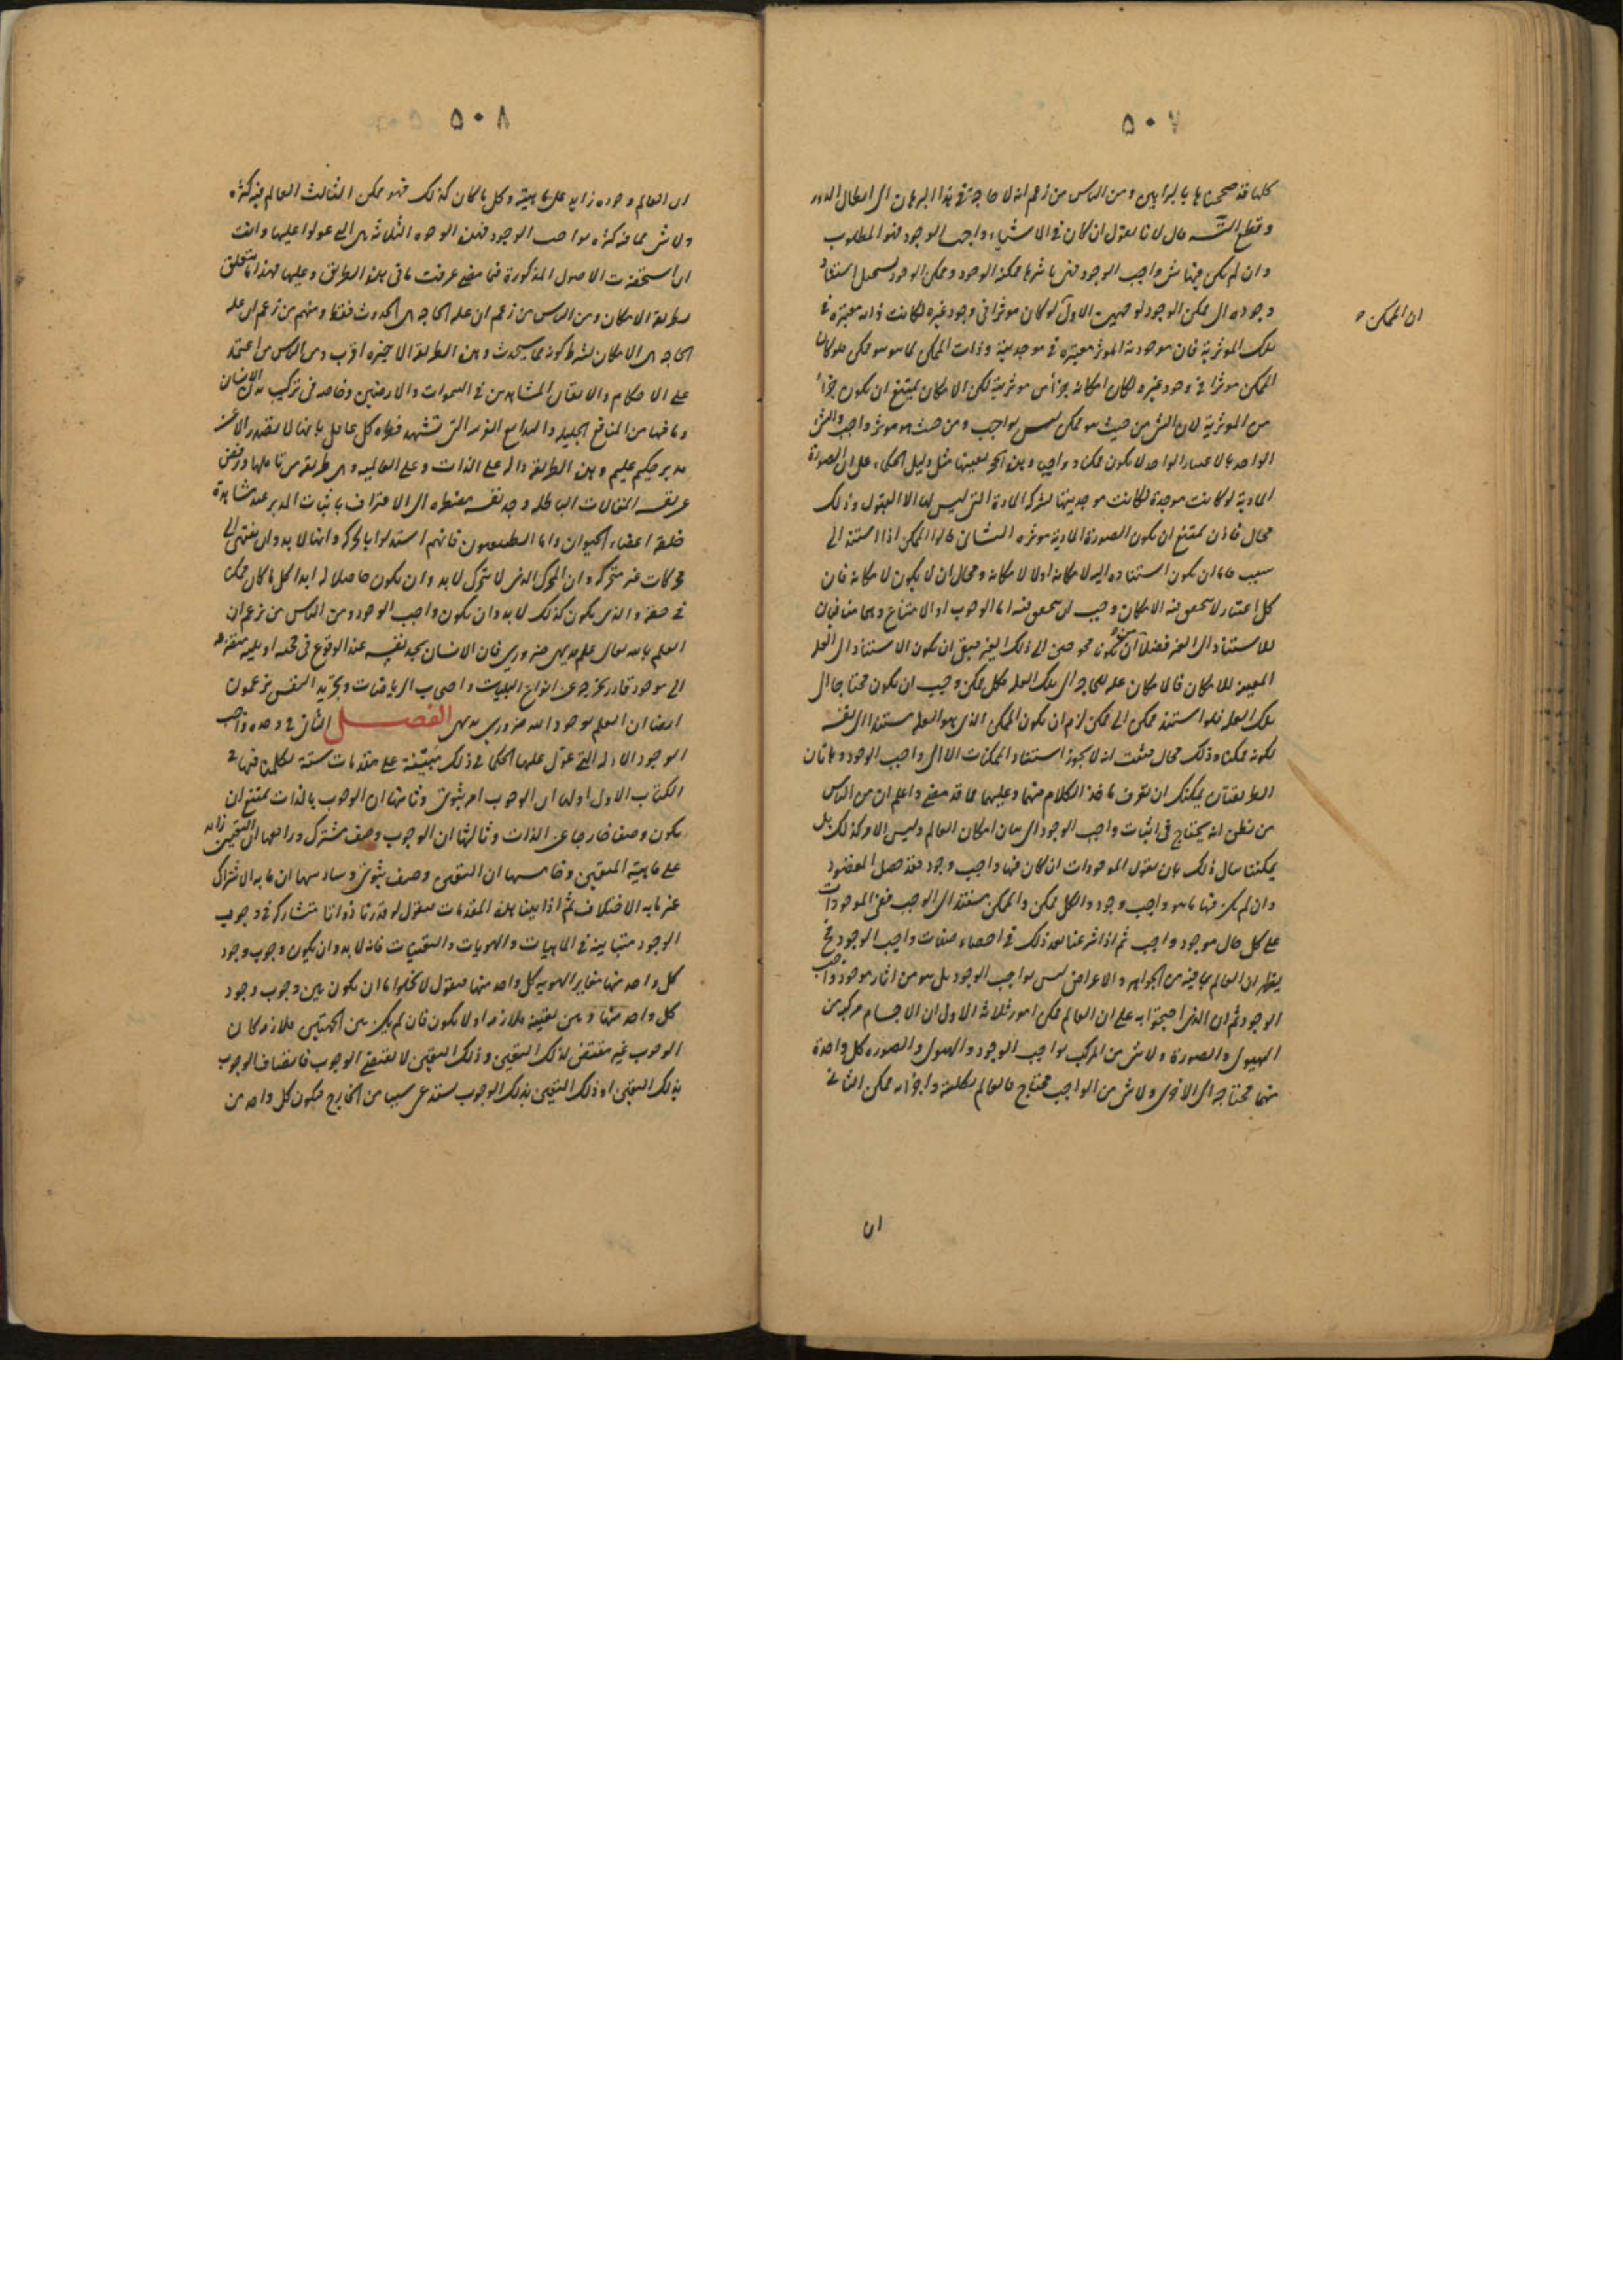 ٥٠٧
كلها قد صححناها بالبراهين ومن الناس من زعم انه لا حاجة في هذا البرهان الى ابطال الدور
وقطع التسـ قال لانا نقول ان كان في الاشياء واجب الوجود فهو المطلوب
وان لم يكن فيها شئ واجب الوجود فهى باسرها ممكنة الوجود وممكن الوجود يستحيل استناد
وجوده الى ممكن الوجود لوجهين الاول لو كان موثرا فى وجود غيره لكانت ذاته معتبرة فى
ان الممكن
تلك الموثرية فان موجودية الموثر معتبره فى موجديته وذات الممكن بما هو هو ممكن فلو كان
الممكن موثرا فى وجود غيره لكان امكانه جزأ من موثريته لكن الامكان يمتنع ان يكون جزأ
من الموثرية لان الشئ من حيث هو ممكن ليس بواجب ومن حيث هو موثر واجب والشئ
الواحد بالاعتبار الواحد لا يكون ممكنا وواجبا وهذه الحجة بعينها مثل دليل الحكماء على ان الصورة
المادية لو كانت موجدة لكانت موجديتها بشركة المادة التى ليس لها الا القبول وذلك
محال فاذن يمتنع ان يكون الصورة المادية موثره الثانى قالوا الممكن اذا استند الى
سبب فاما ان يكون استناده اليه لامكانه او لا لامكانه ومحال ان لا يكون لامكانه فان
كل اعتبار لا يتحقق فيه الامكان وجب ان يتحقق فيه اما الوجوب او الامتناع وهما منافيان
للاستناد الى الغير فضلا ان يكونا محوجين الى ذلك الغير فبقى ان يكون الاستناد الى العلة
المعينة للامكان فالامكان علة للحاجة الى تلك العلة فكل ممكن وجب ان يكون محتاجا الى
تلك العلة فلو استند ممكن الى ممكن لزم ان يكون الممكن الذى هو العلة مستندا الى نفسه
لكونه ممكنا وذلك محال فثبت انه لا يجوز استناد الممكنات الا الى واجب الوجود وهاتان
الطريقتان يمكنك ان تعرف ماخذ الكلام فيهما وعليهما مما قد مضى واعلم ان من الناس
من يظن انه يحتاج فى اثبات واجب الوجود الى بيان امكان العالم وليس الامر كذلك بل
يمكننا بيان ذلك بان نقول الموجودات ان كان فيها واجب وجود فقد حصل المقصود
وان لم يكن فيها ما هو واجب وجود والكل ممكن والممكن مستند الى الواجب ففى الموجودات
على كل حال موجود واجب ثم اذا شرعنا بعد ذلك فى احصاء صفات واجب الوجود فح
يظهر ان العالم بما فيه من الجواهر والاعراض ليس بواجب الوجود بل هو من اثار موجود واجب
الوجود ثم ان الذى احتجوا به على ان العالم ممكن امور ثلاثة الاول ان الاجسام مركبة من
الهيولى والصورة ولا شئ من المركب بواجب الوجود والهيولى والصوره كل واحدة
منهما محتاجة الى الاخرى ولا شئ من الواجب محتاج فالعالم بكليته واجزائه ممكن الثانى
ان
٥٠٨
ان العالم وجوده زايد على ماهيته وكل ما كان كذلك فهو ممكن الثالث العالم فيه كثرة
ولا شئ مما فيه كثرة بواجب الوجود فهذه الوجوه الثلاثة هى التى عولوا عليها وانت
ان استحضرت الاصول المذكورة فيما مضى عرفت ما فى هذه الطرق وعليها فهذا ما يتعلق
بطريقة الامكان ومن الناس من زعم ان علة الحاجة هى الحدوث فقط ومنهم من زعم ان علة
الحاجة هى الامكان بشرط كونه مما يحدث وهذه الطريقة الاخيرة اقرب ومن الناس من اعتمد
على الاحكام والاتقان المشاهدين فى السموات والارضين وخاصة فى تركيب بدن الانسان
وما فيها من المنافع الجليلة والبدايع الغريبة التى تشهد فطرة كل عاقل بانها لا تصدر الا عن
مدبر حكيم عليم وهذه الطريقة دالة على الذات وعلى العالمية وهى طريقة من تاملها ورفض
عن نفسه المقالات الباطلة وجد نفسه مضطرة الى الاعتراف باثبات المدبر عند مشاهدة
خلقة اعضاء الحيوان واما الطبيعيون فانهم استدلوا بالحركة وانها لا بد وان ينتهى الى
محركات غير متحركة وان المحرك الذى لا يتحرك لا بد وان يكون حاصلا له ابدا كل ما كان ممكنا
فى حقه والذى يكون كذلك لا بد وان يكون واجب الوجود ومن الناس من زعم ان
العلم بالله تعالى علم بديهى ضرورى فان الانسان يجد نفسه عند الوقوع فى محنة او بلية متضرعة
الى موجود قادر يخرجه عن انواع البليات واصحاب الرياضات وتجريد النفس يزعمون
ايضا ان العلم بوجود الله ضرورى بديهى الفصـــل الثانى فى وحدة واجب
الوجود الادلة التى عوّل عليها الحكماء فى ذلك مبنية على مقدمات ستة تكلمنا فيها فى
الكتاب الاول اولها ان الوجوب امر ثبوتى وثانيها ان الوجوب بالذات يمتنع ان
يكون وصفا خارجا عن الذات وثالثها ان الوجوب وصف مشترك ورابعها ان التعين زائد
على ماهية المتعين وخامسها ان التعين وصف ثبوتى وسادسها ان ما به الاشتراك
غير ما به الاختلاف ثم اذا بينا هذه المقدمات فنقول لو قدرنا ذواتا متشاركة فى وجوب
الوجود متباينة فى الماهيات والهويات والتعينات فانه لا بد وان يكون وجوب وجود
كل واحد منها مغاير الهوية كل واحد منها فنقول لا يخلوا اما ان يكون بين وجوب وجود
كل واحد منها وبين تعينه ملازمة او لا يكون فان لم يكن بين الجهتين ملازمة كان
الوجوب غير مقتض لذلك التعين وذلك التعين لا يقتضى الوجوب فاتصاف الوجوب
بذلك التعين او ذلك التعين بذلك الوجوب يستدعى سببا من الخارج فيكون كل واحد من